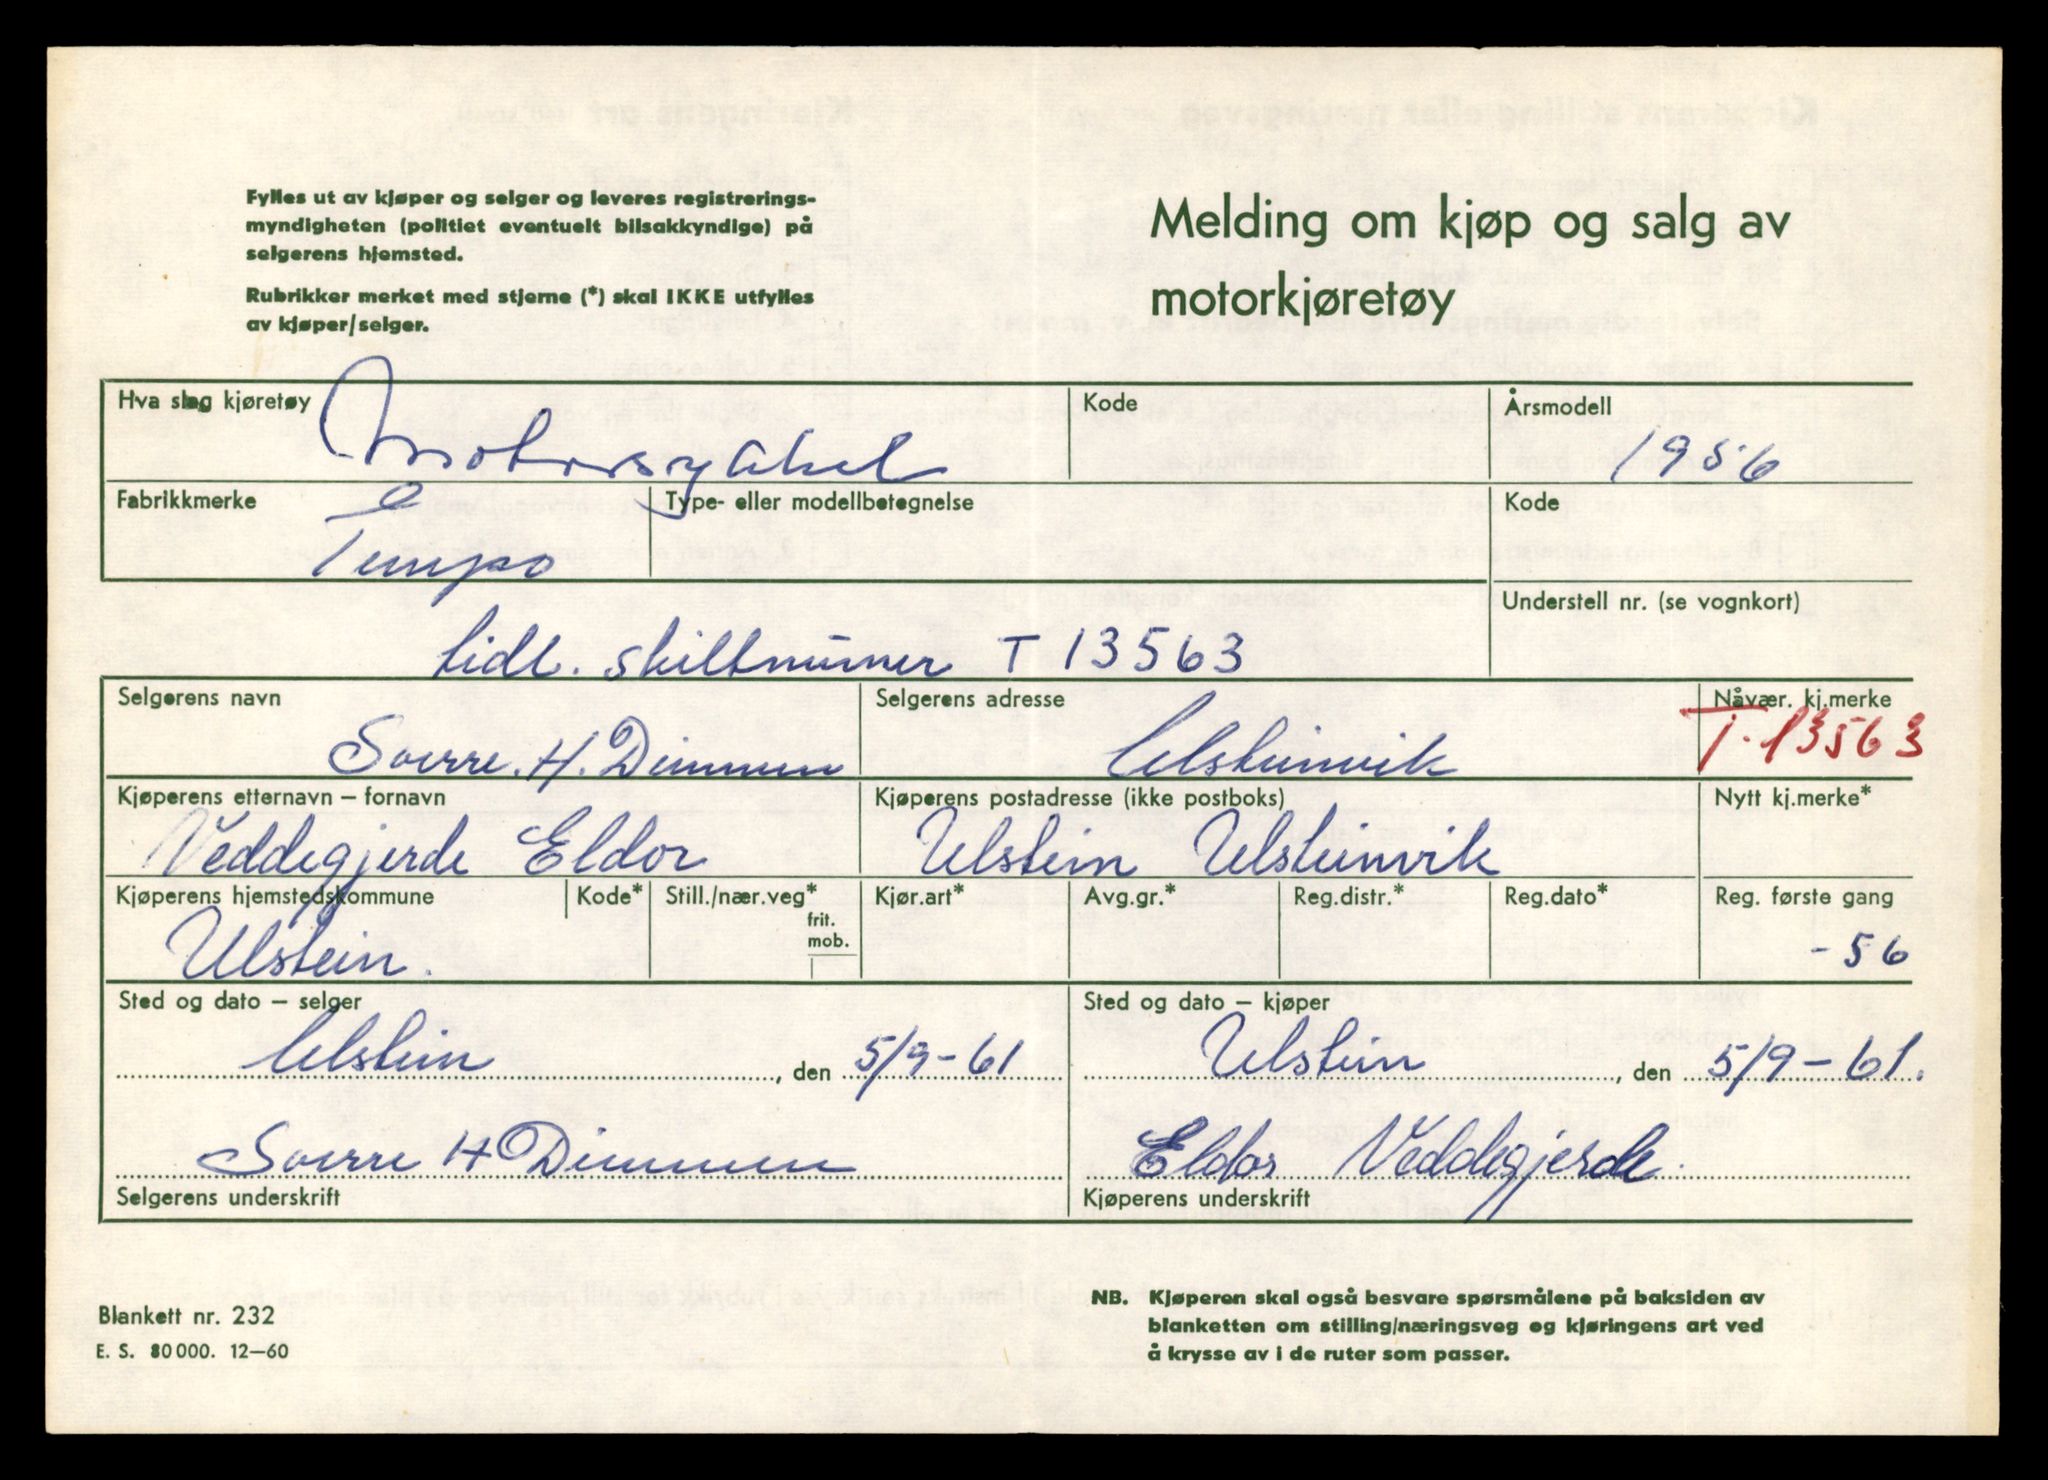 Fylles ut av kjøper og selger og leveres registrerings-
myndigheten (politiet eventuelt bilsakkyndige) på
selgerens hjemsted.
Rubrikker merket med stjerne (*) skal IKKE utfylles
av kjøper/selger.
Melding om kjøp og salg av
motorkjøretøy
Hva slag kjøretøy
Motorsykkel
Kode
Årsmodell
1956
Fabrikkmerke
Tempo
Type- eller modellbetegnelse
Kode
Understell nr. (se vognkort)
tidl. skiltnummer T 13563
Selgerens navn
Sverre. H. Dimmen
Selgerens adresse
Ulsteinvik
Nåvær. kj.merke
T-13563
Kjøperens etternavn – fornavn
Veddegjerde Eldor
Kjøperens postadresse (ikke postboks)
Ulstein Ulsteinvik
Nytt kj.merke*
Kjøperens hjemstedskommune
Ulstein.
Kode*
Still./nær.veg*
frit.
mob.
Kjør.art*
Avg.gr.*
Reg.distr.*
Reg.dato*
Reg. første gang
-56
Sted og dato – selger
Ulstein, den 5/9-61
Sverre H Dimmen
Selgerens underskrift
Sted og dato – kjøper
Ulstein, den 5/9-61.
Eldor Veddegjerde.
Kjøperens underskrift
Blankett nr. 232
E. S. 80 000. 12–60
NB. Kjøperen skal også besvare spørsmålene på baksiden av
blanketten om stilling/næringsveg og kjøringens art ved
å krysse av i de ruter som passer.